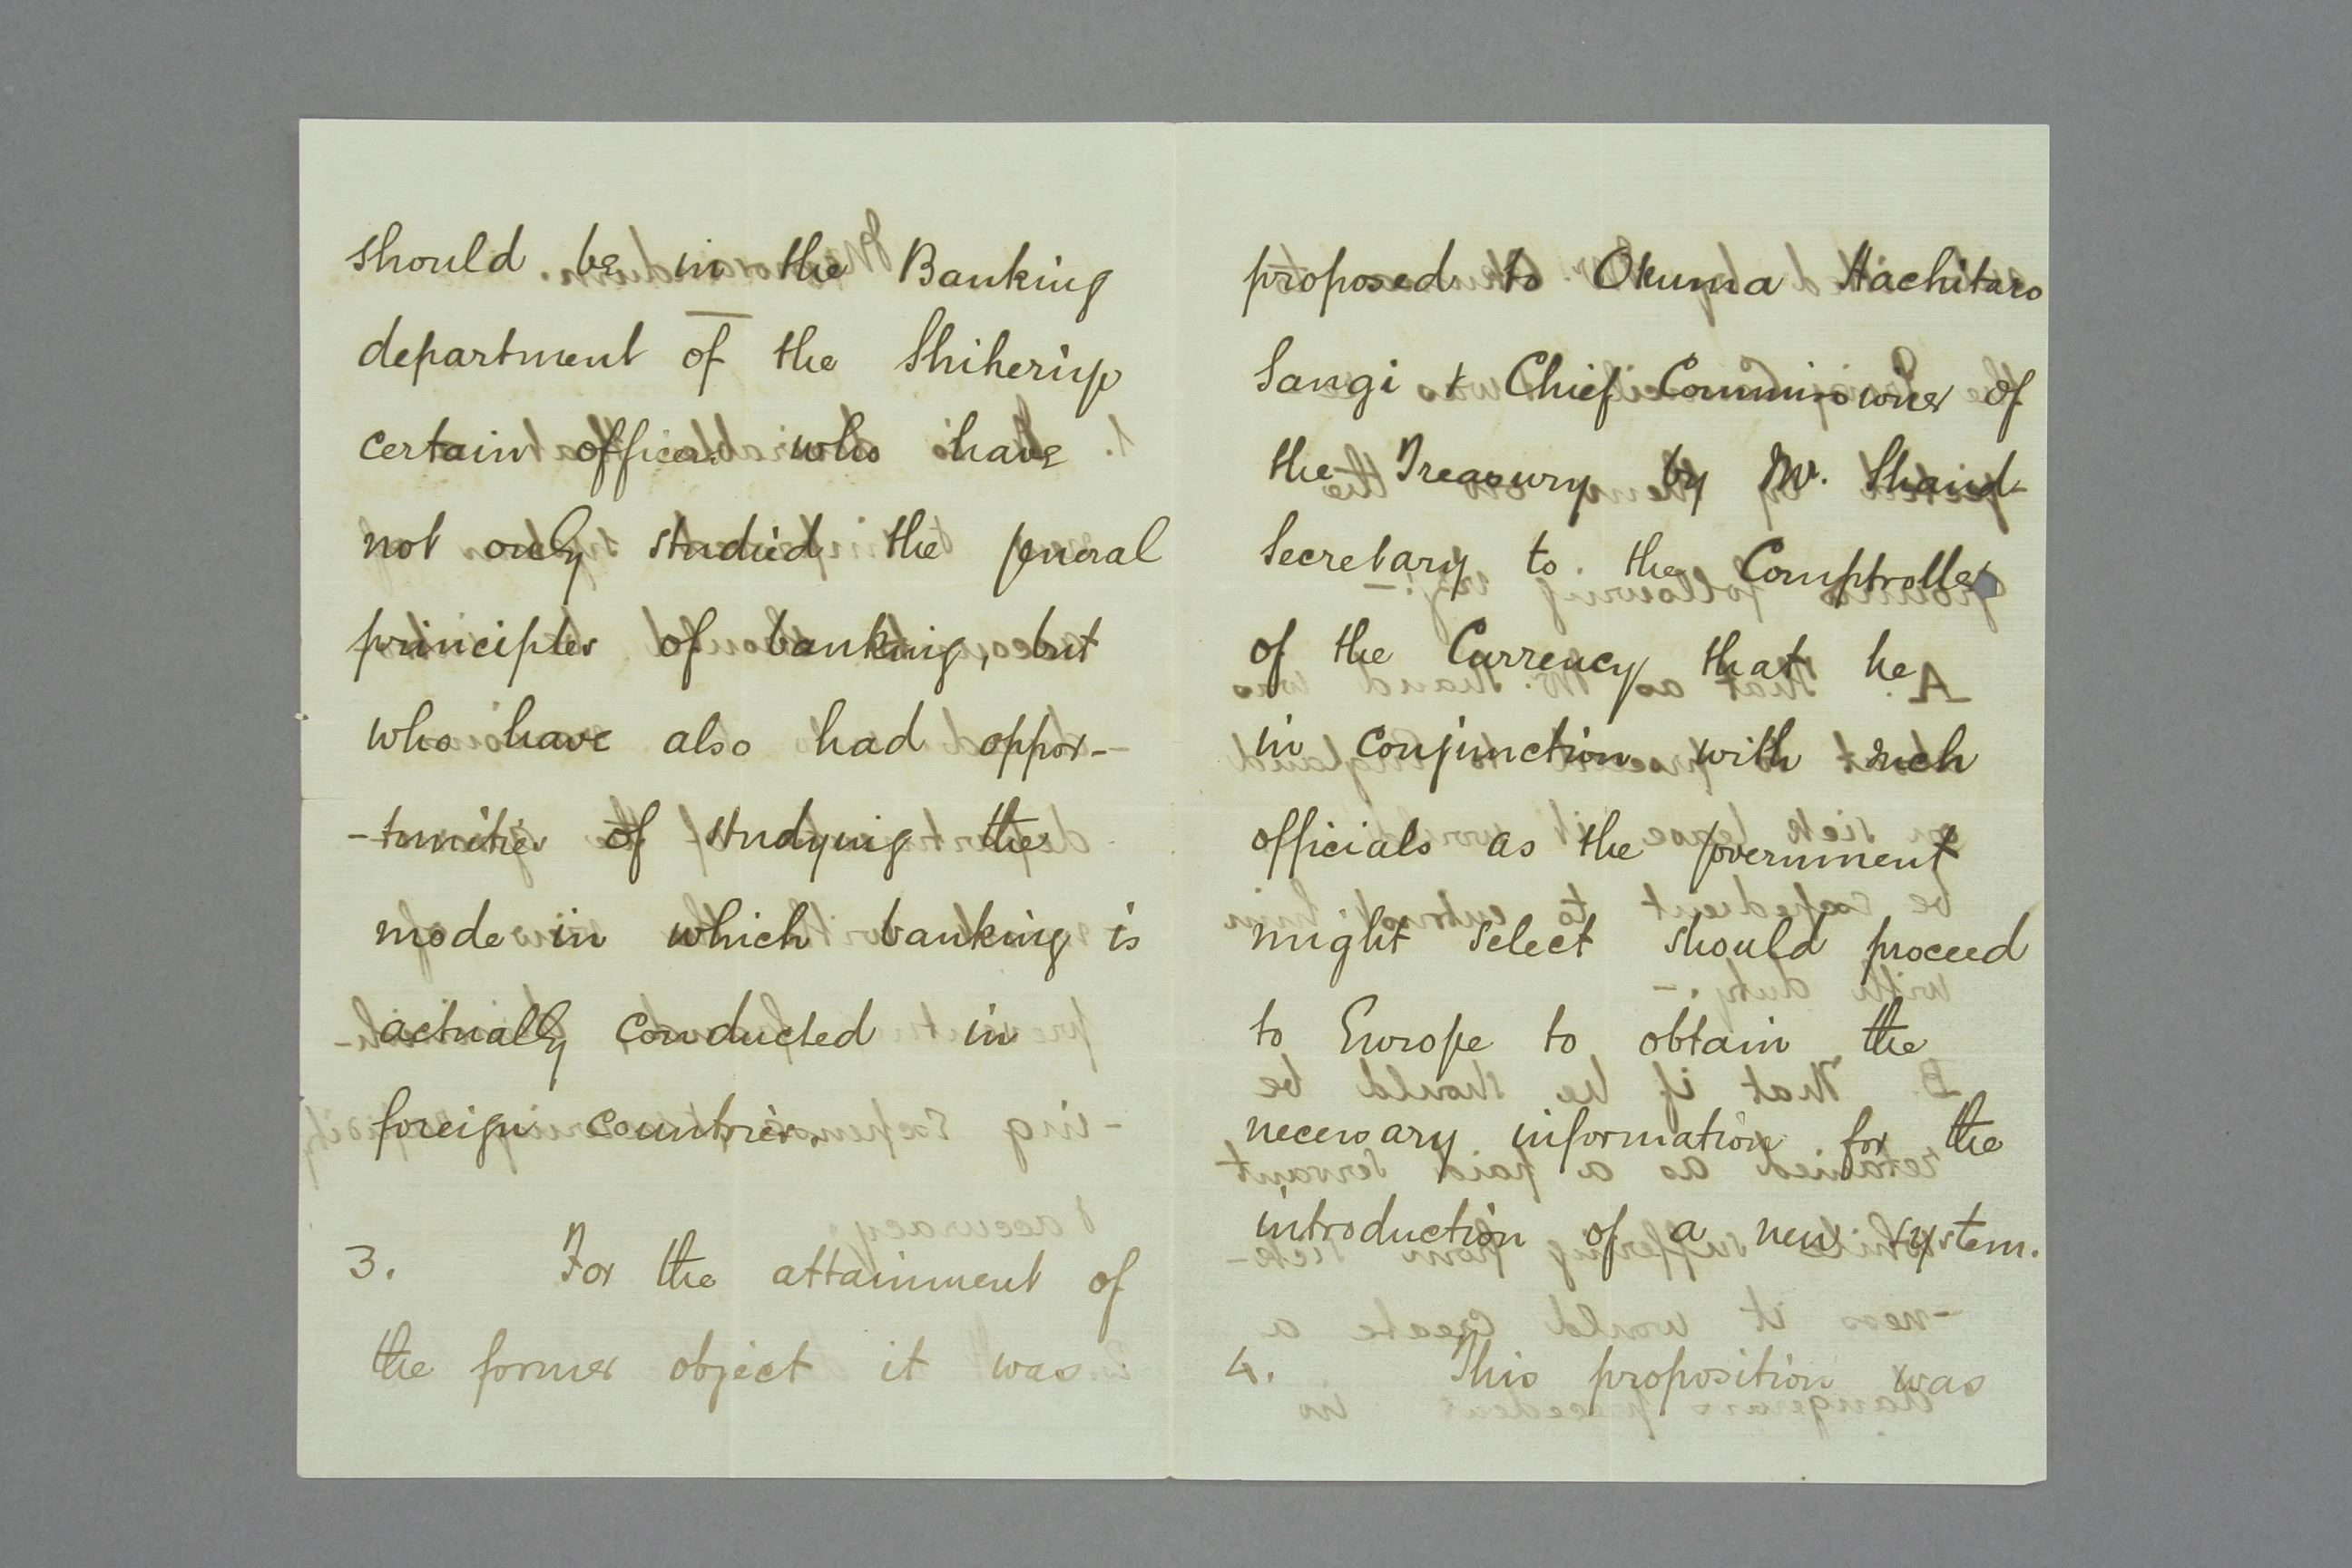 should be in the Banking
department of the Shiheriyo
certain officers who have
not only studied the general
principles of banking, but
who have also had oppor-
-tunities of studying the
mode in which banking is
actually conducted in
foreign countries.
3. For the attainment of
the former object it was
proposed to Okuma Hachitaro
Sangi & Chief Commissioner of
the Treasury by Mr. Shand
Secretary to the Comptroller
of the Currency that he
in conjunction with such
officials as the government
might select should proceed
to Europe to obtain the
necessary information for the
introduction of a new system.
4. This proposition was